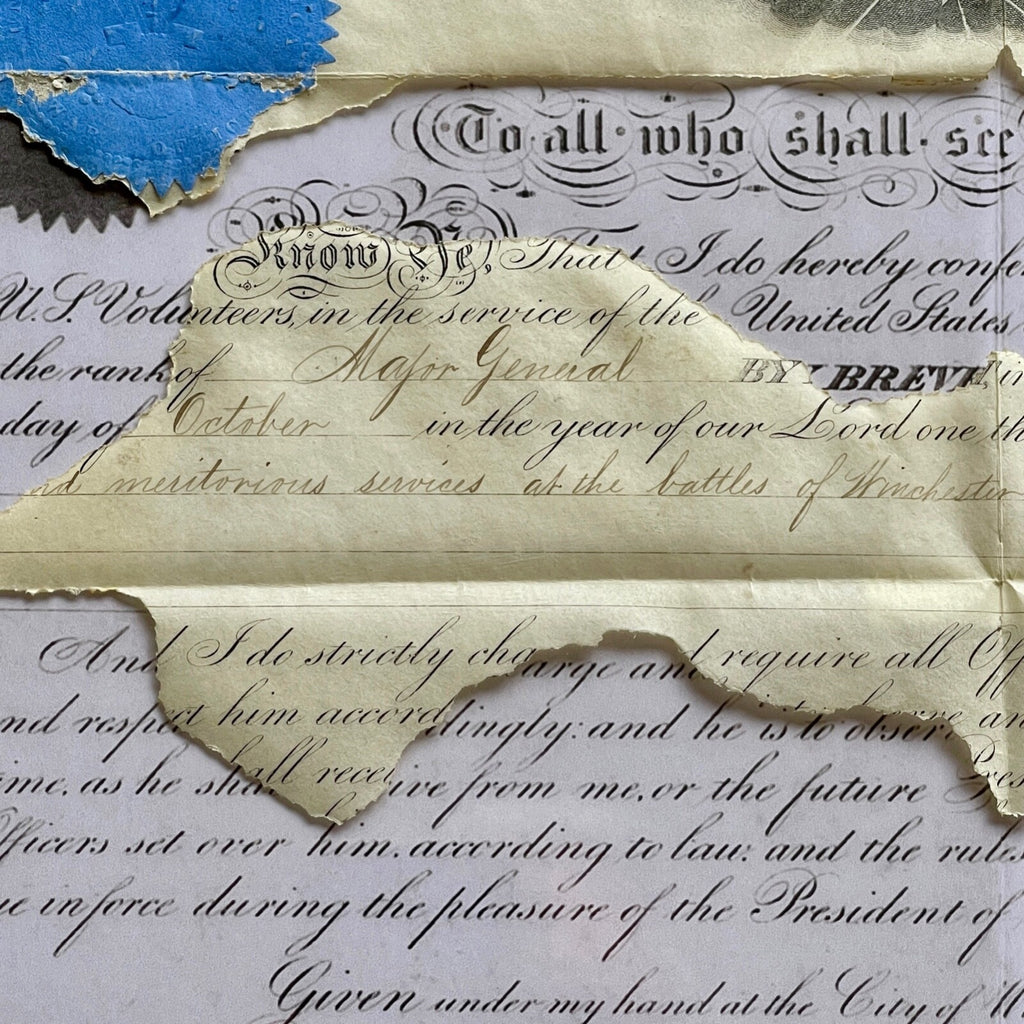 To all who shall see
Know Ye, That I do hereby confe
U.S. Volunteers, in the service of the United States
the rank of Major General BY BREVET, in
day of October in the year of our Lord one th
nd meritorious services at the battles of Winchester
And I do strictly charge and require all Off
nd respect him accordingly: and he is to observe an
ime, as he shall receive from me, or the future Pres
fficers set over him, according to law: and the rules
ue in force during the pleasure of the President of
Given under my hand at the City of W